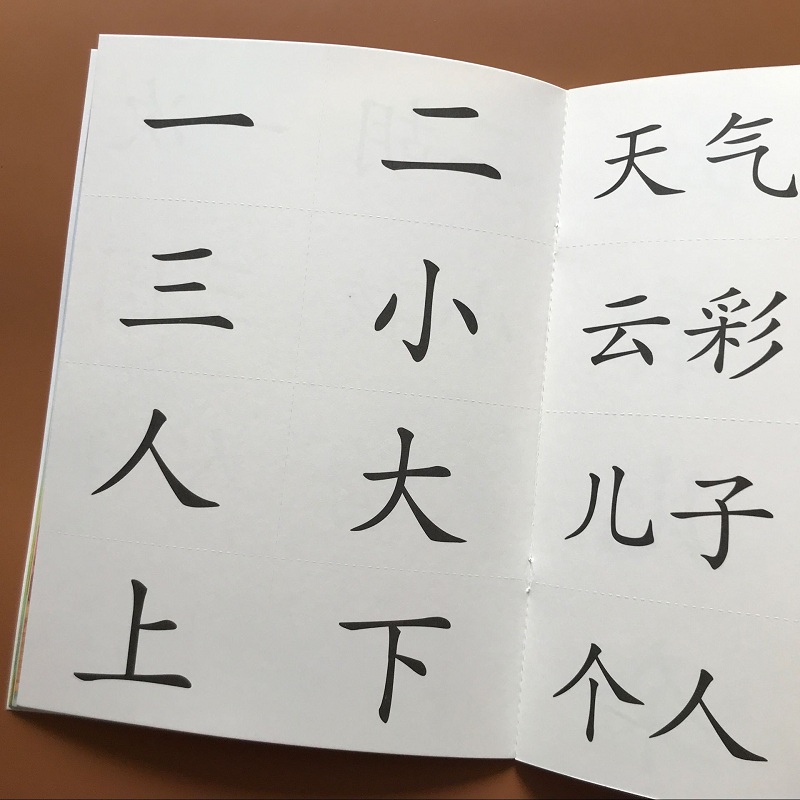 一 二
三 小
人 大
上 下
天气
云彩
儿子
个人